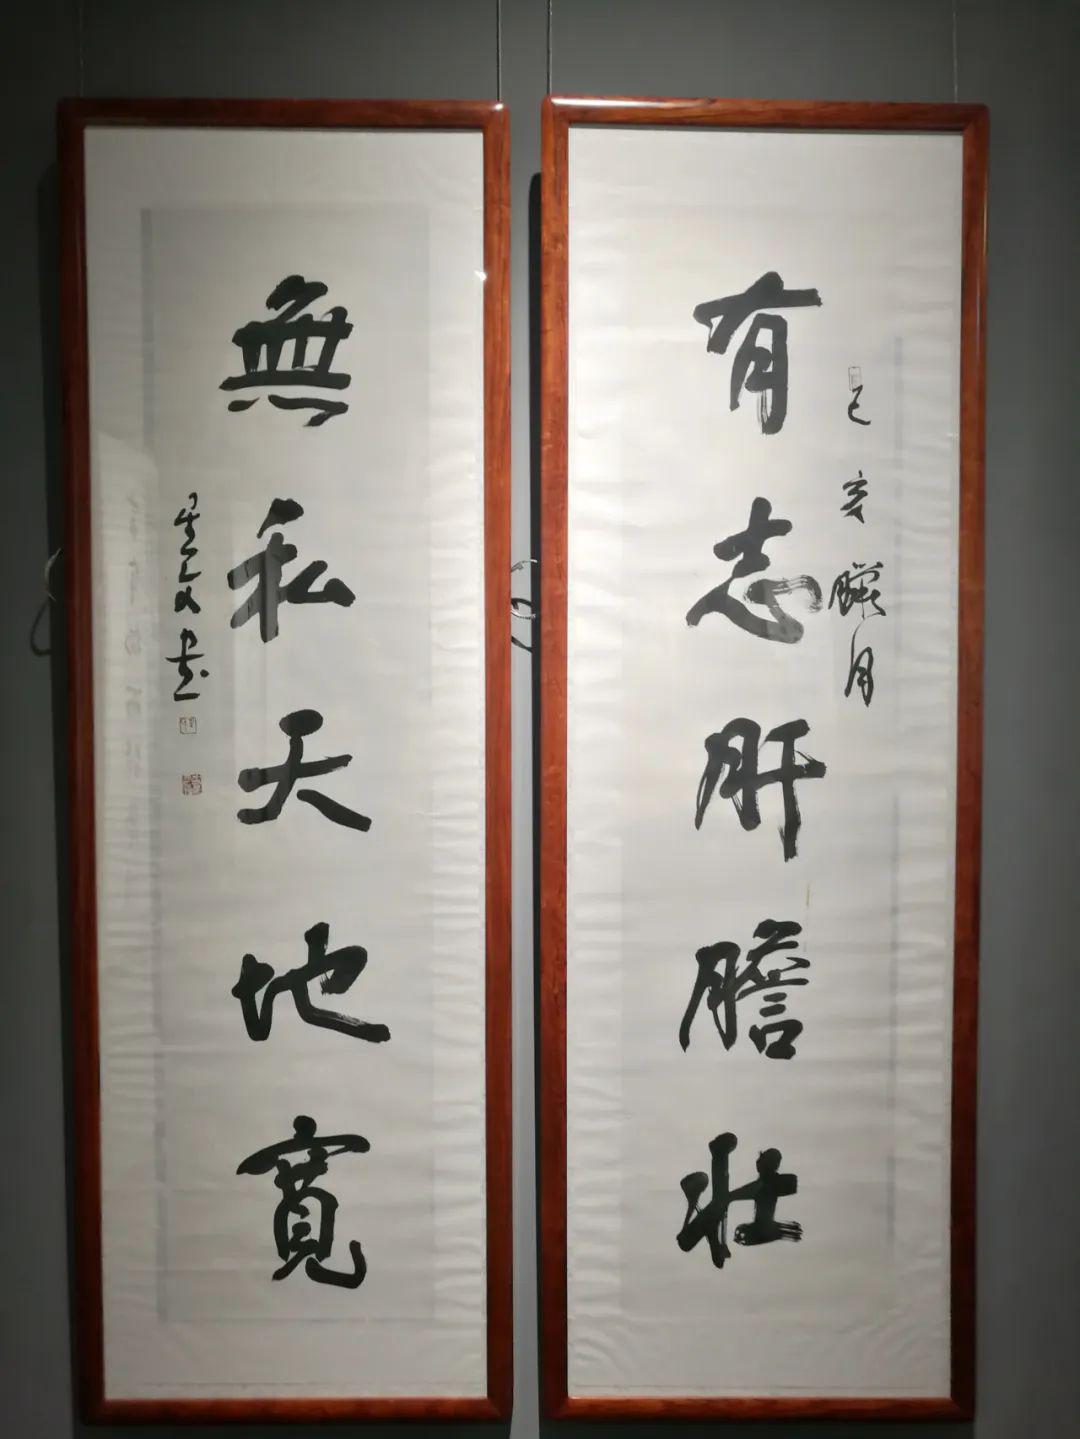 有志肝膽壯
己亥臘月
無私天地寬